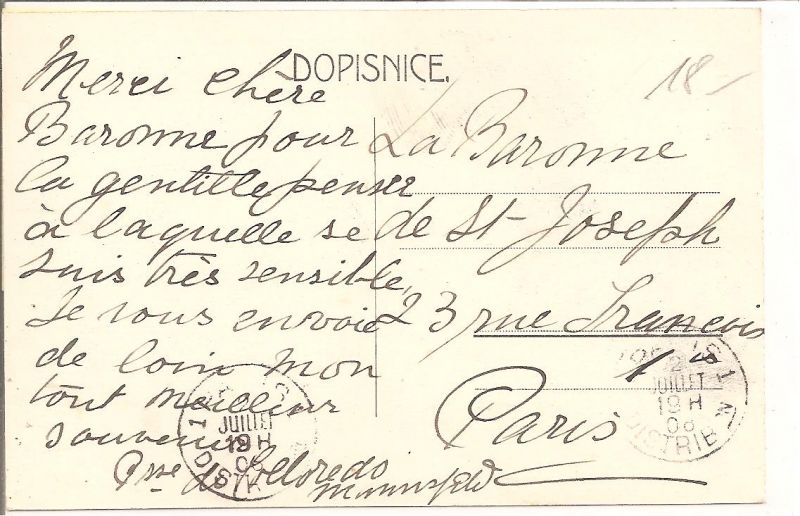 DOPISNICE.
18-
Merci chère
Baronne pour
la gentille pensée
à laquelle je
suis très sensible,
Je vous envoie
de loin mon
tout meilleur
souvenir
Psse de Colloredo
Mannsfeld
La Baronne
de St-Joseph
23 rue François
1
Paris
JUILLET
19 H
06
DISTRIB
JUILLET
19 H
06
DISTRIB